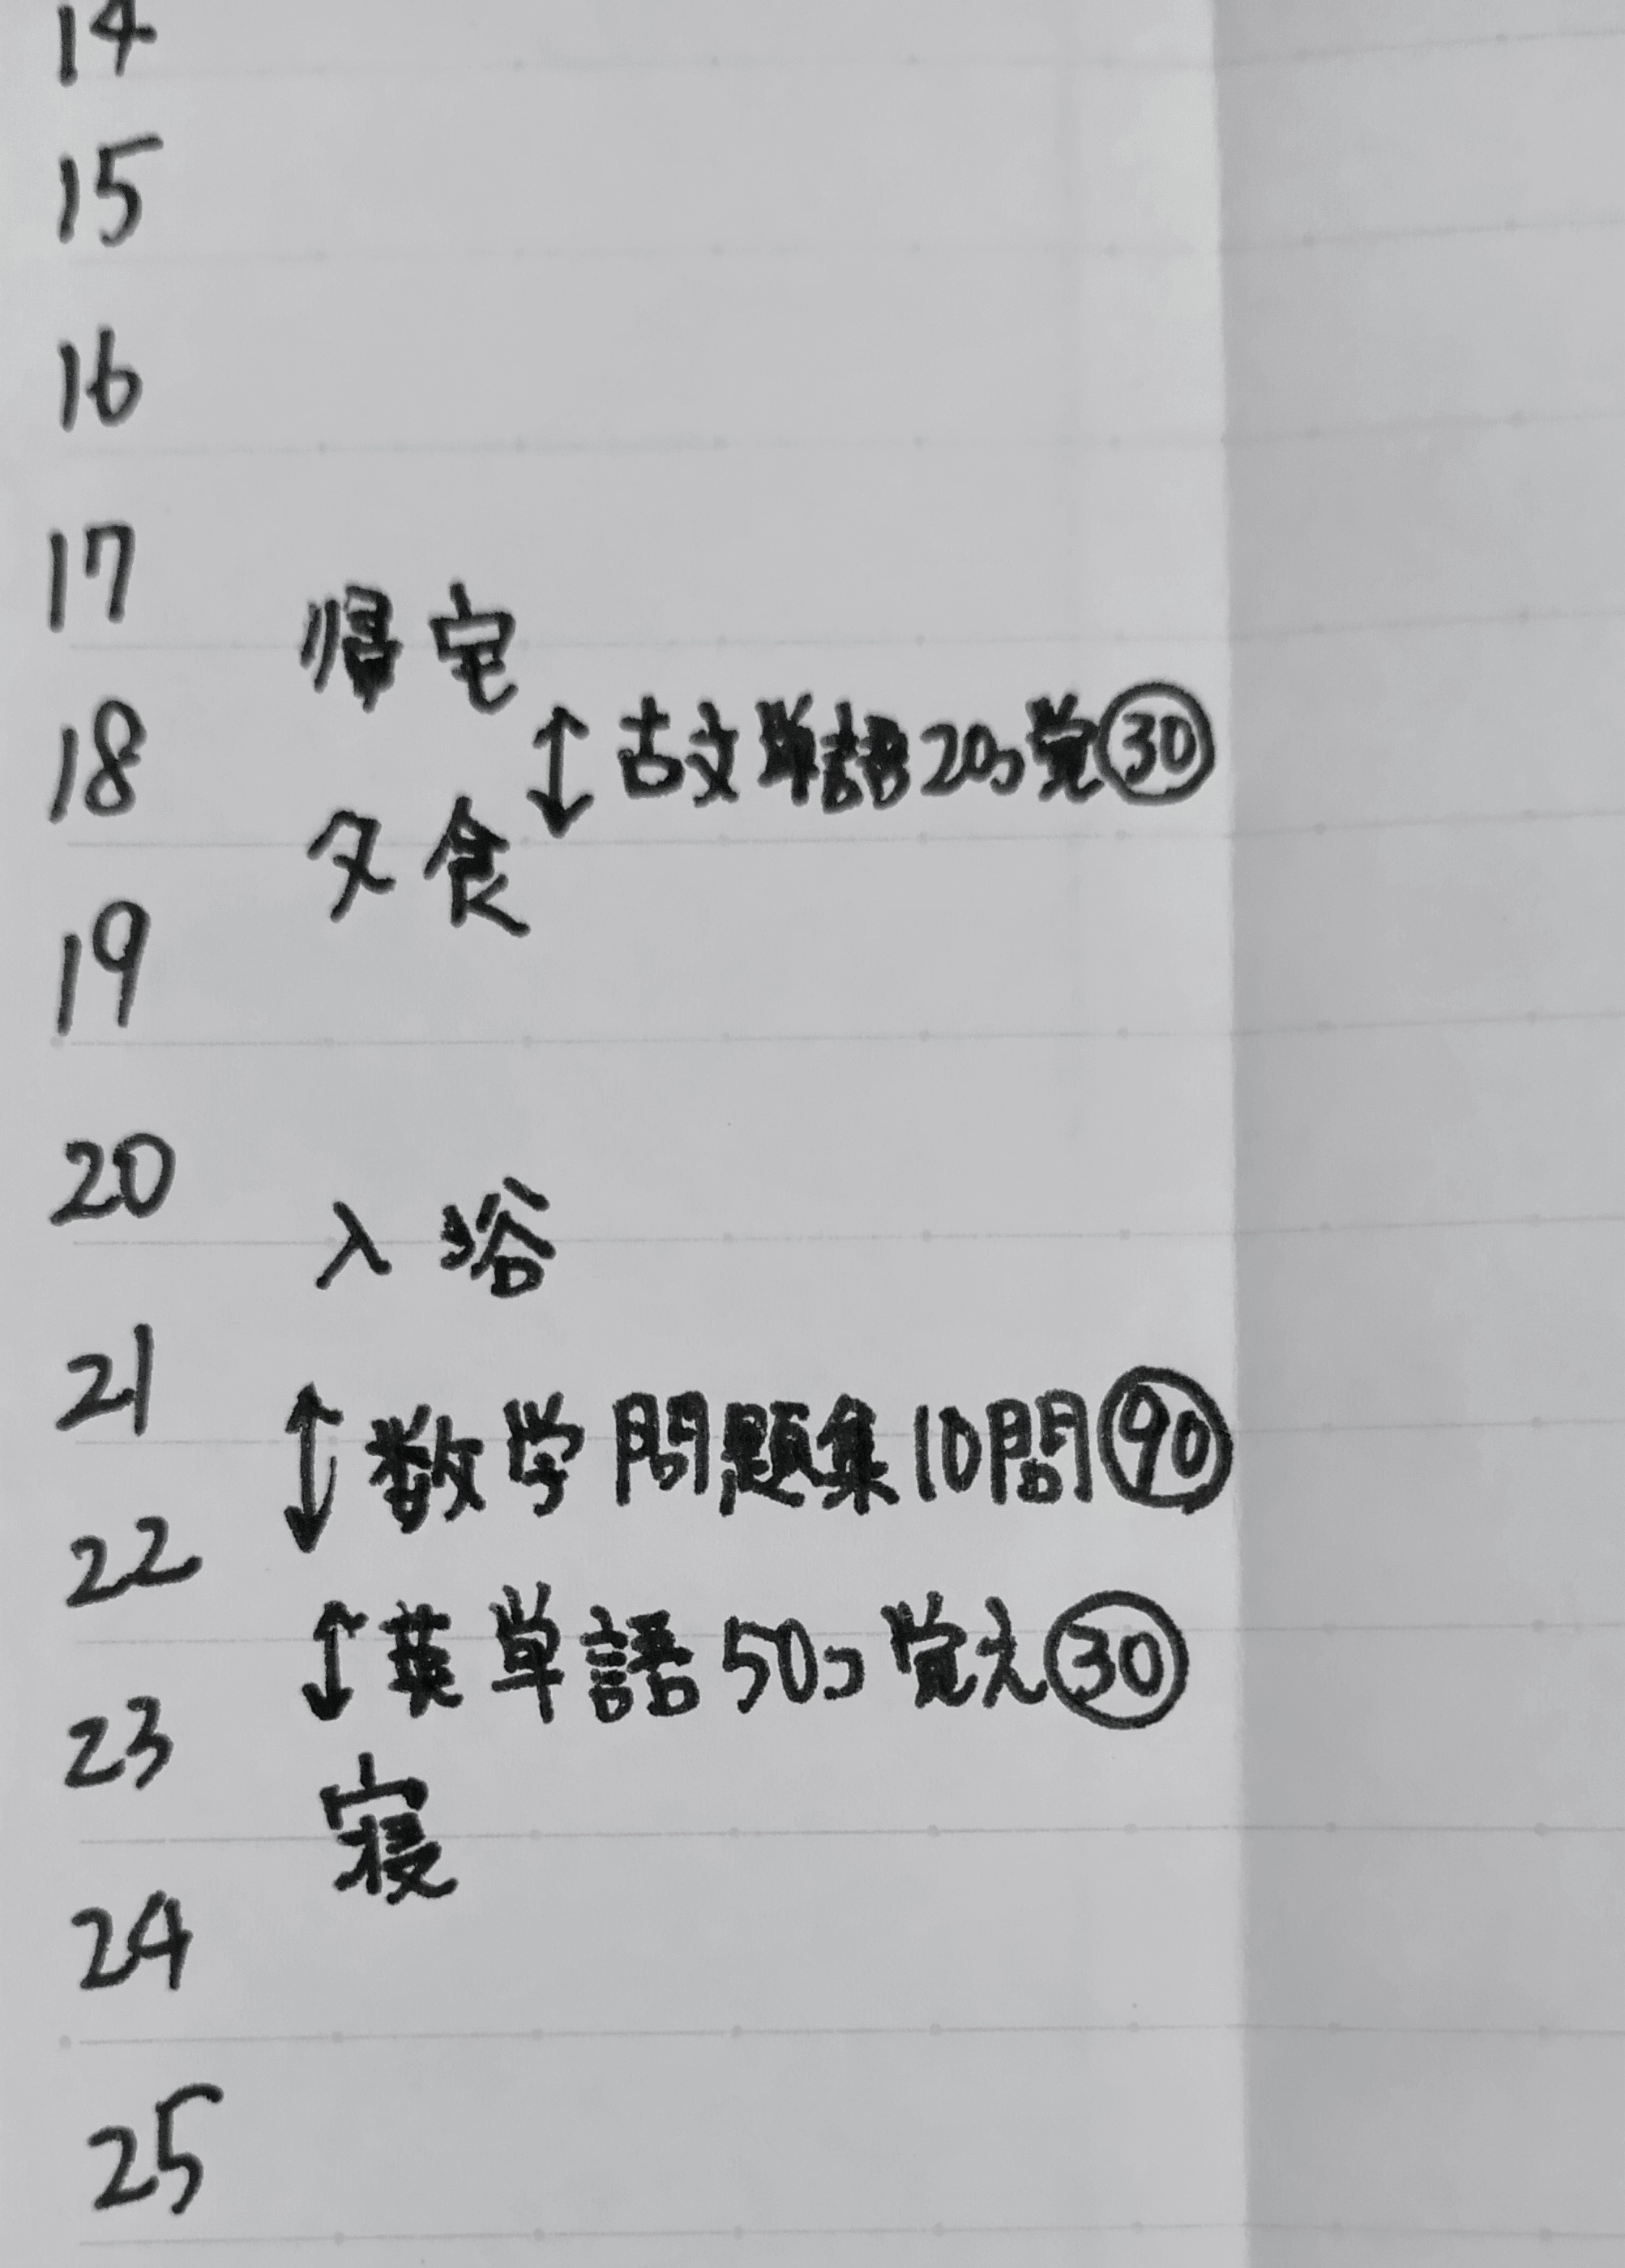 14
15
16
17
帰宅
18
↕ 古文単語20コ覚㉚
夕食
19
20
入浴
21
↕ 数学問題集10問 90
22
↕ 英単語50コ覚え㉚
23
寝
24
25